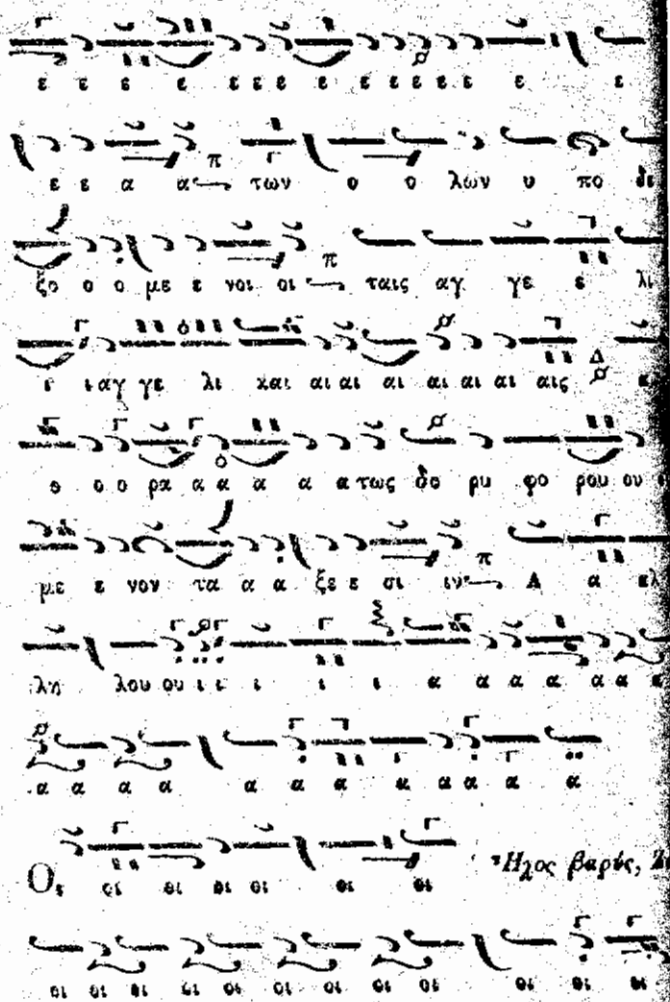 ε ε ε ε ε ε ε ε ε ε ε ε ε ε ε
ε ε α α π των ο ο λων υ πο δε
ξο ο ο με ε νοι οι π ταις αγ γε ε λι
ι ι αγ γε λι και αι αι αι αι αι αι αις Δ
ο ο ο ρα α α α α α τως δο ρυ φο ρου ου
με ε νον τα α α ξε ε σι ιν π Α α λ
λη λου ου ι ι ι ι ι α α α α α α
α α α α α α α α α α α
Οι οι οι οι οι οι οι Ἦχος βαρύς,
οι οι οι οι οι οι οι οι οι οι οι οι